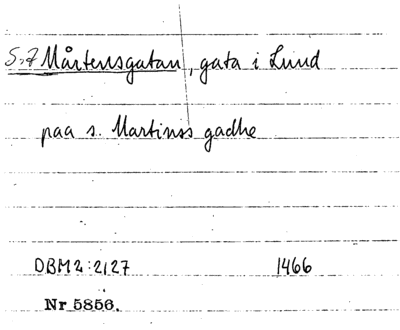 S:t Mårtensgatan, gata i Lund
paa s. Martinss gadhe
DBM2:2,27 1466
Nr 5856.